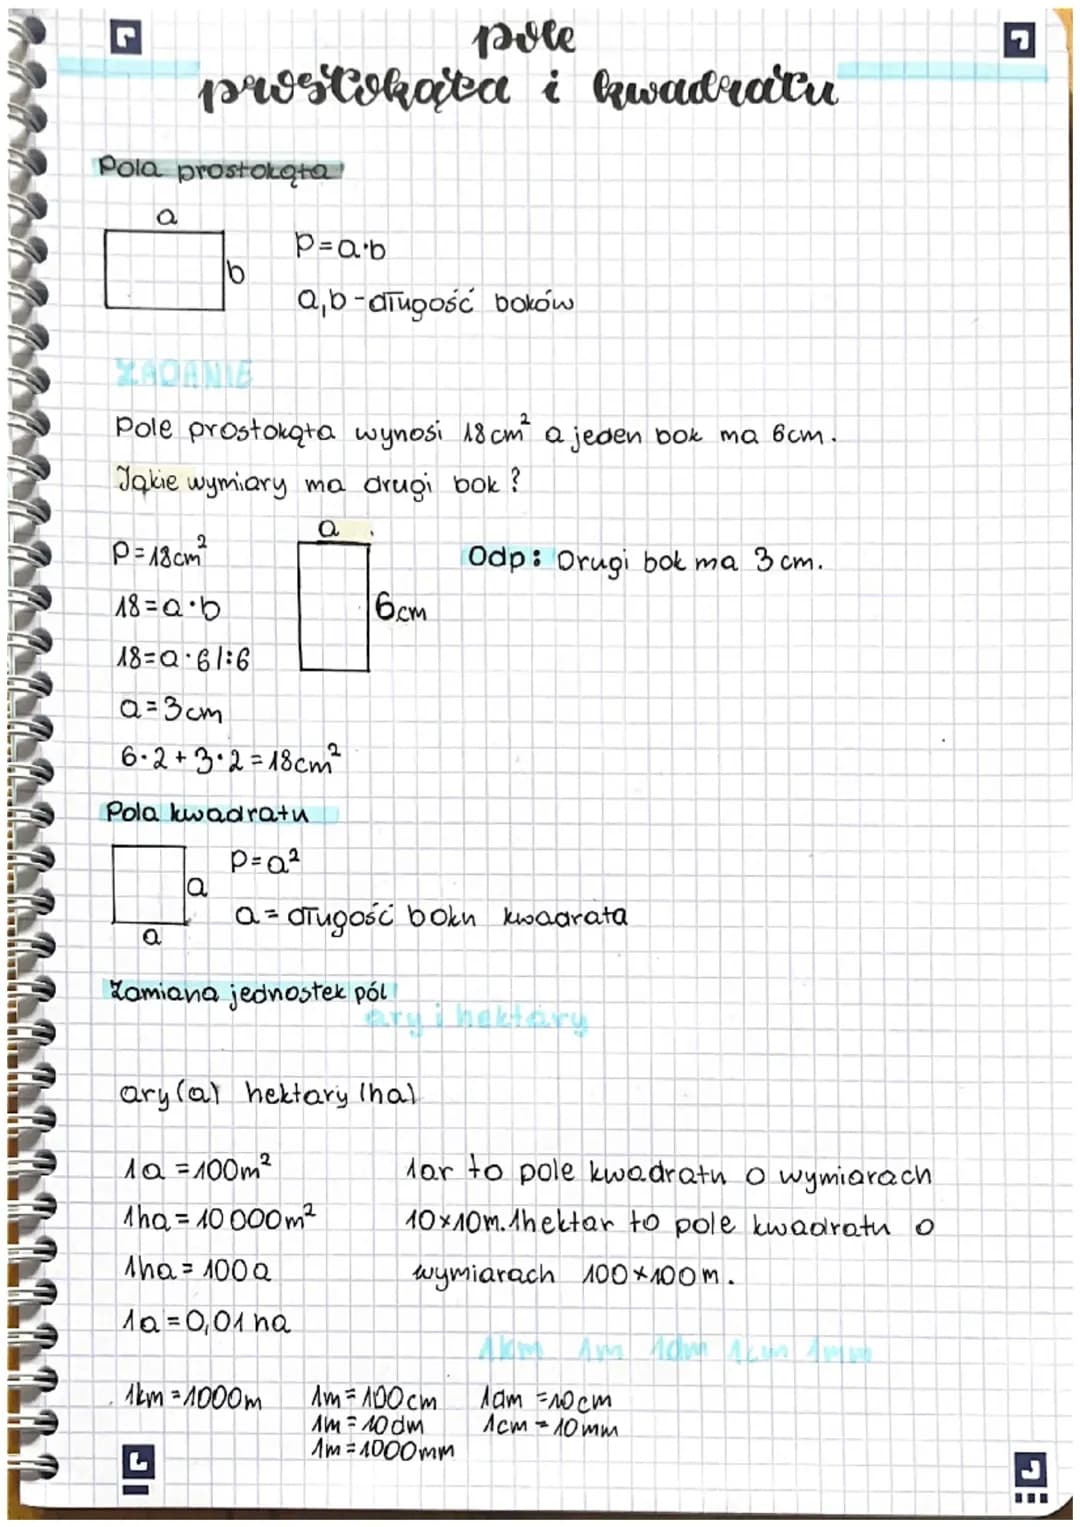 pole
prostokąta i kwadratu
Pola prostokąta
a
b
P=a·b
a,b-długość boków
ZADANIE
Pole prostokąta wynosi 18cm² a jeden bok ma 6cm.
Jakie wymiary ma drugi bok?
a
6cm
P=18cm²
18=a·b
18=a·6/:6
a=3cm
6·2+3·2=18cm²
Odp: Drugi bok ma 3cm.
Pola kwadratu
a
a
P=a²
a=długość boku kwadrata
Zamiana jednostek pól
ary i hektary
ary(a) hektary(ha)
1a=100m²
1ha=10 000m²
1ha=100a
1a=0,01 ha
1ar to pole kwadratu o wymiarach
10×10m. 1hektar to pole kwadratu o
wymiarach 100×100m.
1km 1m 1dm 1cm 1mm
1km=1000m
1m=100cm
1m=10dm
1m=1000mm
1dm=10cm
1cm=10mm